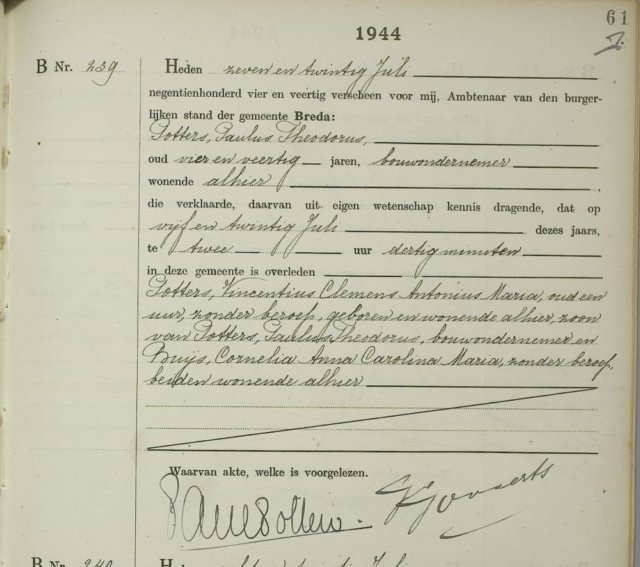 61
1944
B Nr. 239 Heden zeven en twintig Juli
negentienhonderd vier en veertig verscheen voor mij, Ambtenaar van den burger-
lijken stand der gemeente Breda:
Potters, Paulus Theodorus,
oud vier en veertig jaren, bouwondernemer
wonende alhier ,
die verklaarde, daarvan uit eigen wetenschap kennis dragende, dat op
vijf en twintig Juli dezes jaars,
te twee uur dertig minuten
in deze gemeente is overleden
Potters, Vincentius Clemens Antonius Maria, oud een
uur, zonder beroep, geboren en wonende alhier, zoon
van Potters, Paulus Theodorus, bouwondernemer en
Buijs, Cornelia Anna Carolina Maria, zonder beroep,
beiden wonende alhier
Waarvan akte, welke is voorgelezen.
B Nr. 240